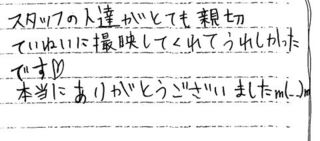 スタッフの人達がとても親切
ていねいに撮映してくれてうれしかった
です♡
本当にありがとうございましたm(_)m